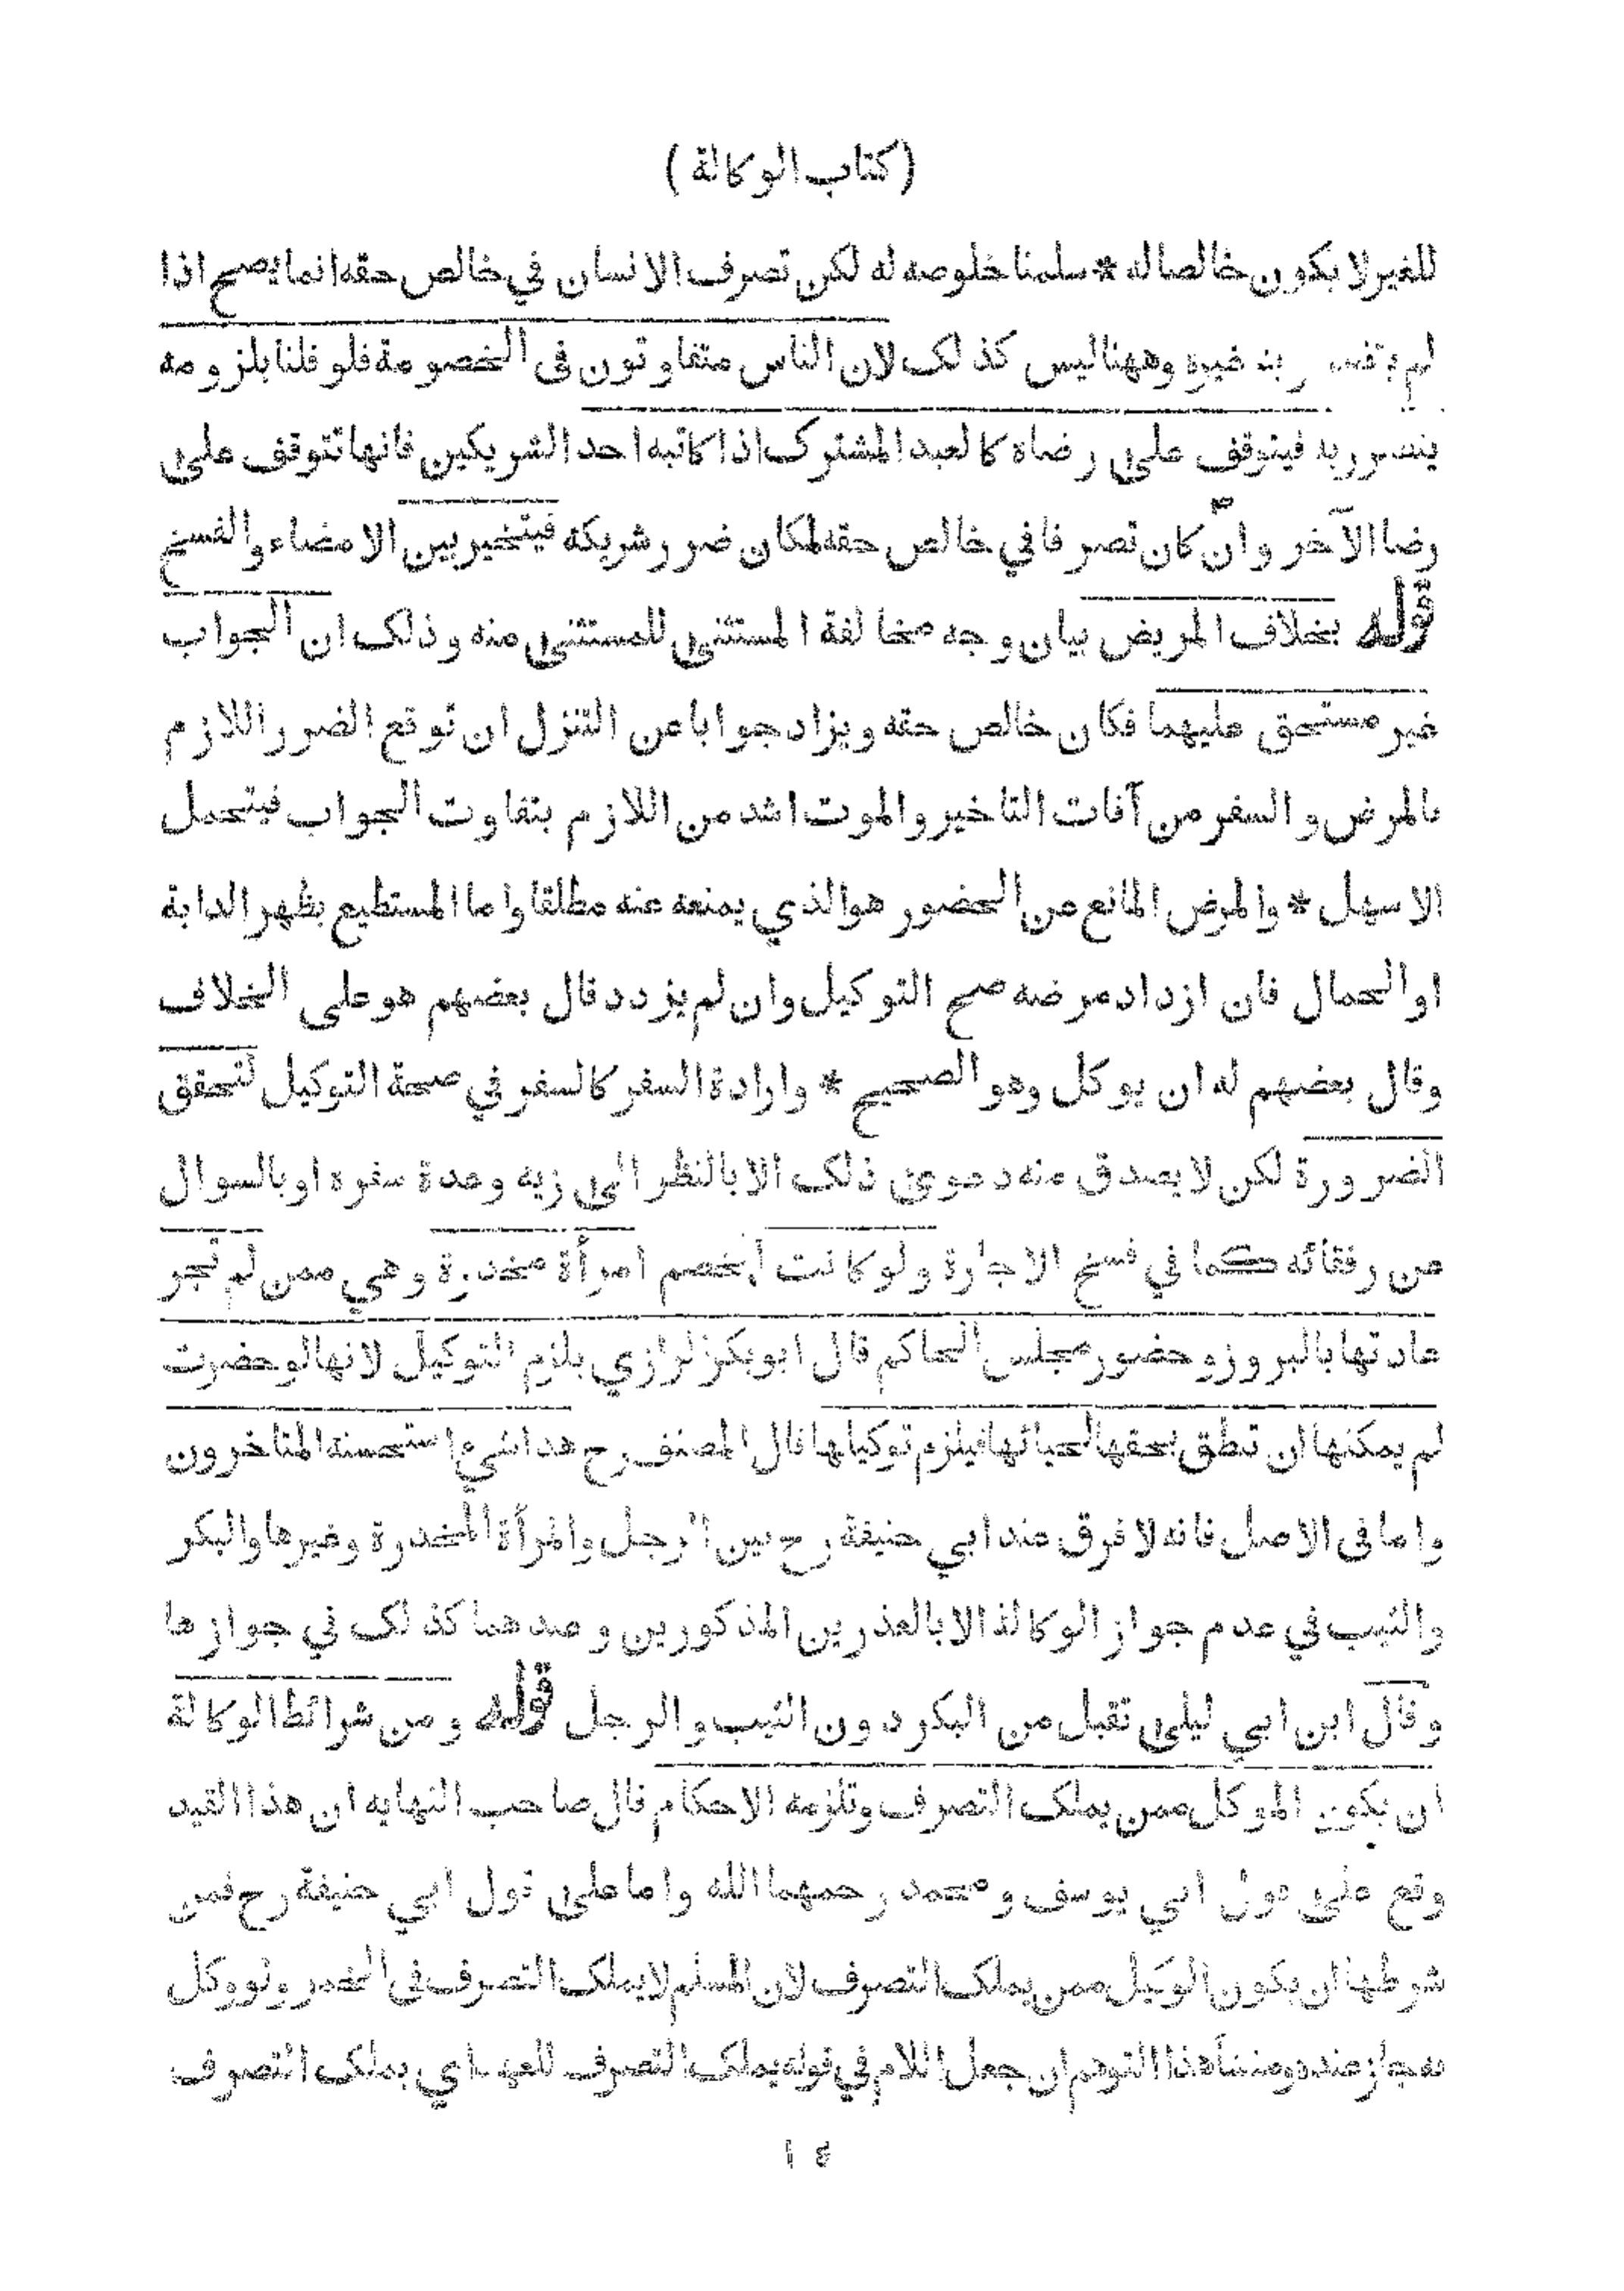 (كتاب الوكالة)
للغير لا يكون خالصا له * سلمنا خلوصه له لكن تصرف الانسان في خالص حقه انما يصح اذا
لم غيره وههنا ليس كذلك لان الناس متفاوتون فى الخصومة فلو قلنا بلزومه
يتضرر به فيتوقف على رضاه كالعبد المشترك اذا كاتبه احد الشريكين فانها تتوقف على
رضا الآخر وان كان تصرفا في خالص حقه لمكان ضرر شريكه فيتخير بين الامضاء والفسخ
قوله بخلاف المريض بيان وجه مخالفة المستثنى للمستثنى منه وذلك ان الجواب
غير مستحق عليهما فكان خالص حقه ويزاد جوابا عن التنزل ان توقع الضرر اللازم
بالمرض والسفر من آفات التاخير والموت اشد من اللازم بتفاوت الجواب فيتحمل
الاسهل * والمرض المانع من الحضور هو الذي يمنعه عنه مطلقا واما المستطيع بظهر الدابة
او الحمال فان ازداد مرضه صح التوكيل وان لم يزدد قال بعضهم هو على الخلاف
وقال بعضهم له ان يوكل وهو الصحيح * وارادة السفر كالسفر في صحة التوكيل لتحقق
الضرورة لكن لا يصدق منه دعوى ذلك الا بالنظر الى زيه وعدة سفره او بالسوال
من رفقائه كما في فسخ الاجارة ولو كانت الخصم امرأة مخدرة وهي ممن لم تجر
عادتها بالبروز وحضور مجلس الحاكم قال ابوبكر الرازي يلزم التوكيل لانها لو حضرت
لم يمكنها ان تنطق بحقها لحيائها فيلزم توكيلها قال المصنف رح هذا شيء استحسنه المتاخرون
واما فى الاصل فانه لا فرق عند ابي حنيفة رح بين الرجل والمرأة المخدرة وغيرها والبكر
والثيب في عدم جواز الوكالة الا بالعذرين المذكورين وعندهما كذلك في جوازها
وقال ابن ابي ليلى تقبل من البكر دون الثيب والرجل قوله ومن شرائط الوكالة
ان يكون الموكل ممن يملك التصرف وتلزمه الاحكام قال صاحب النهايه ان هذا القيد
وقع على قول ابي يوسف ومحمد رحمهما الله واما على قول ابي حنيفة رح فمن
شرطها ان يكون الوكيل ممن يملك التصرف لان المسلم لا يملك التصرف فى الخمر ولو وكل
به جاز عنده ومنشأ هذا التوهم ان جعل اللام في قوله يملك التصرف للعهد اي يملك التصرف
١٤